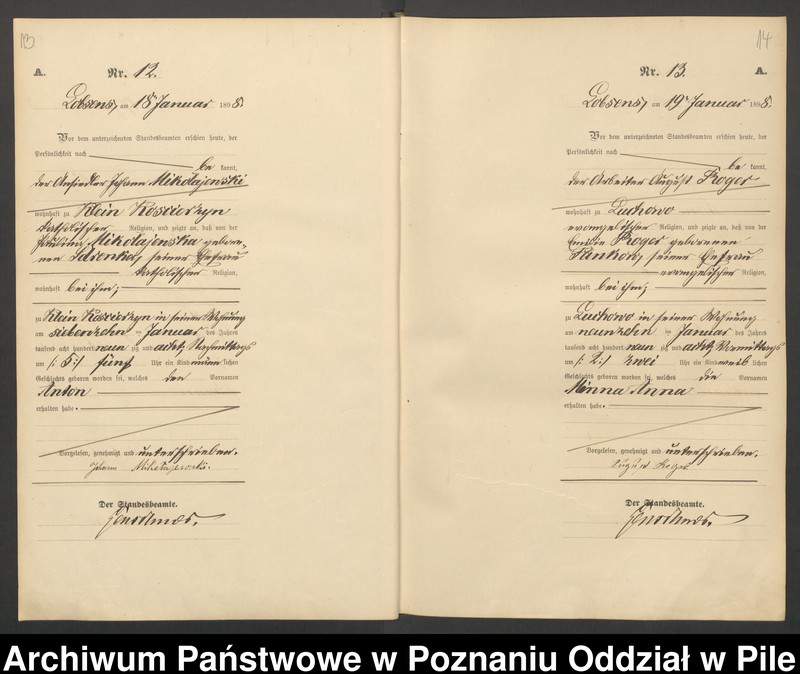 13
A.
Nr. 12.
Lobsens, am 18 Januar 1898.
Vor dem unterzeichneten Standesbeamten erschien heute, der
Persönlichkeit nach
be kannt,
der Ansiedler Johann Mikolajewski
wohnhaft zu Klein Koscierzyn
katholischer Religion, und zeigte an, daß von der
Mikolajewska gebore-
nen seiner Ehefrau
katholischer Religion,
wohnhaft bei ihm,
zu Klein Koscierzyn in seiner Wohnung
am siebenzehn ten Januar des Jahres
tausend acht hundert neun zig und acht Nachmittags
um /: 5 :/ fünf Uhr ein Kind männ lichen
Geschlechts geboren worden sei, welches den Vornamen
Anton
erhalten habe.
Vorgelesen, genehmigt und unterschrieben.
Johann Mikolajewski.
Der Standesbeamte.
14
Nr. 13.
A.
Lobsens, am 19 Januar 1898.
Vor dem unterzeichneten Standesbeamten erschien heute, der
Persönlichkeit nach
be kannt,
der Arbeiter August Roger
wohnhaft zu Luchowo
evangelischer Religion, und zeigte an, daß von der
Roger geborenen
Pankow, seiner Ehefrau
evangelischer Religion,
wohnhaft bei ihm,
zu Luchowo in seiner Wohnung
am neunzehn ten Januar des Jahres
tausend acht hundert neun zig und acht Vormittags
um /: 2 :/ zwei Uhr ein Kind weib lichen
Geschlechts geboren worden sei, welches die Vornamen
Minna Anna
erhalten habe.
Vorgelesen, genehmigt und unterschrieben.
August Roger
Der Standesbeamte.
Archiwum Państwowe w Poznaniu Oddział w Pile